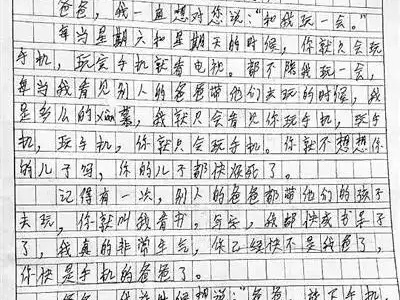 爸爸，我一直想对您说："和我玩一会。"
每当星期六和星期天的时候，你就只会玩
手机，玩完手机就看电视。都不陪我玩一会，
每当我看见别人的爸爸带他们去玩的时候，我
是多么的xiàn慕，我就只会看见你玩手机，玩手
机，玩手机，你就只会玩手机。你就不想想你
的儿子吗，你的儿子都快疯死了。
记得有一次，别人的爸爸都带他们的孩子
去玩，你就叫我看书。写字，我都快成书呆子
了，我真的非常生气，你已经快不是我爸了，
你快是手机的爸爸了。
："爸爸，放下手机，